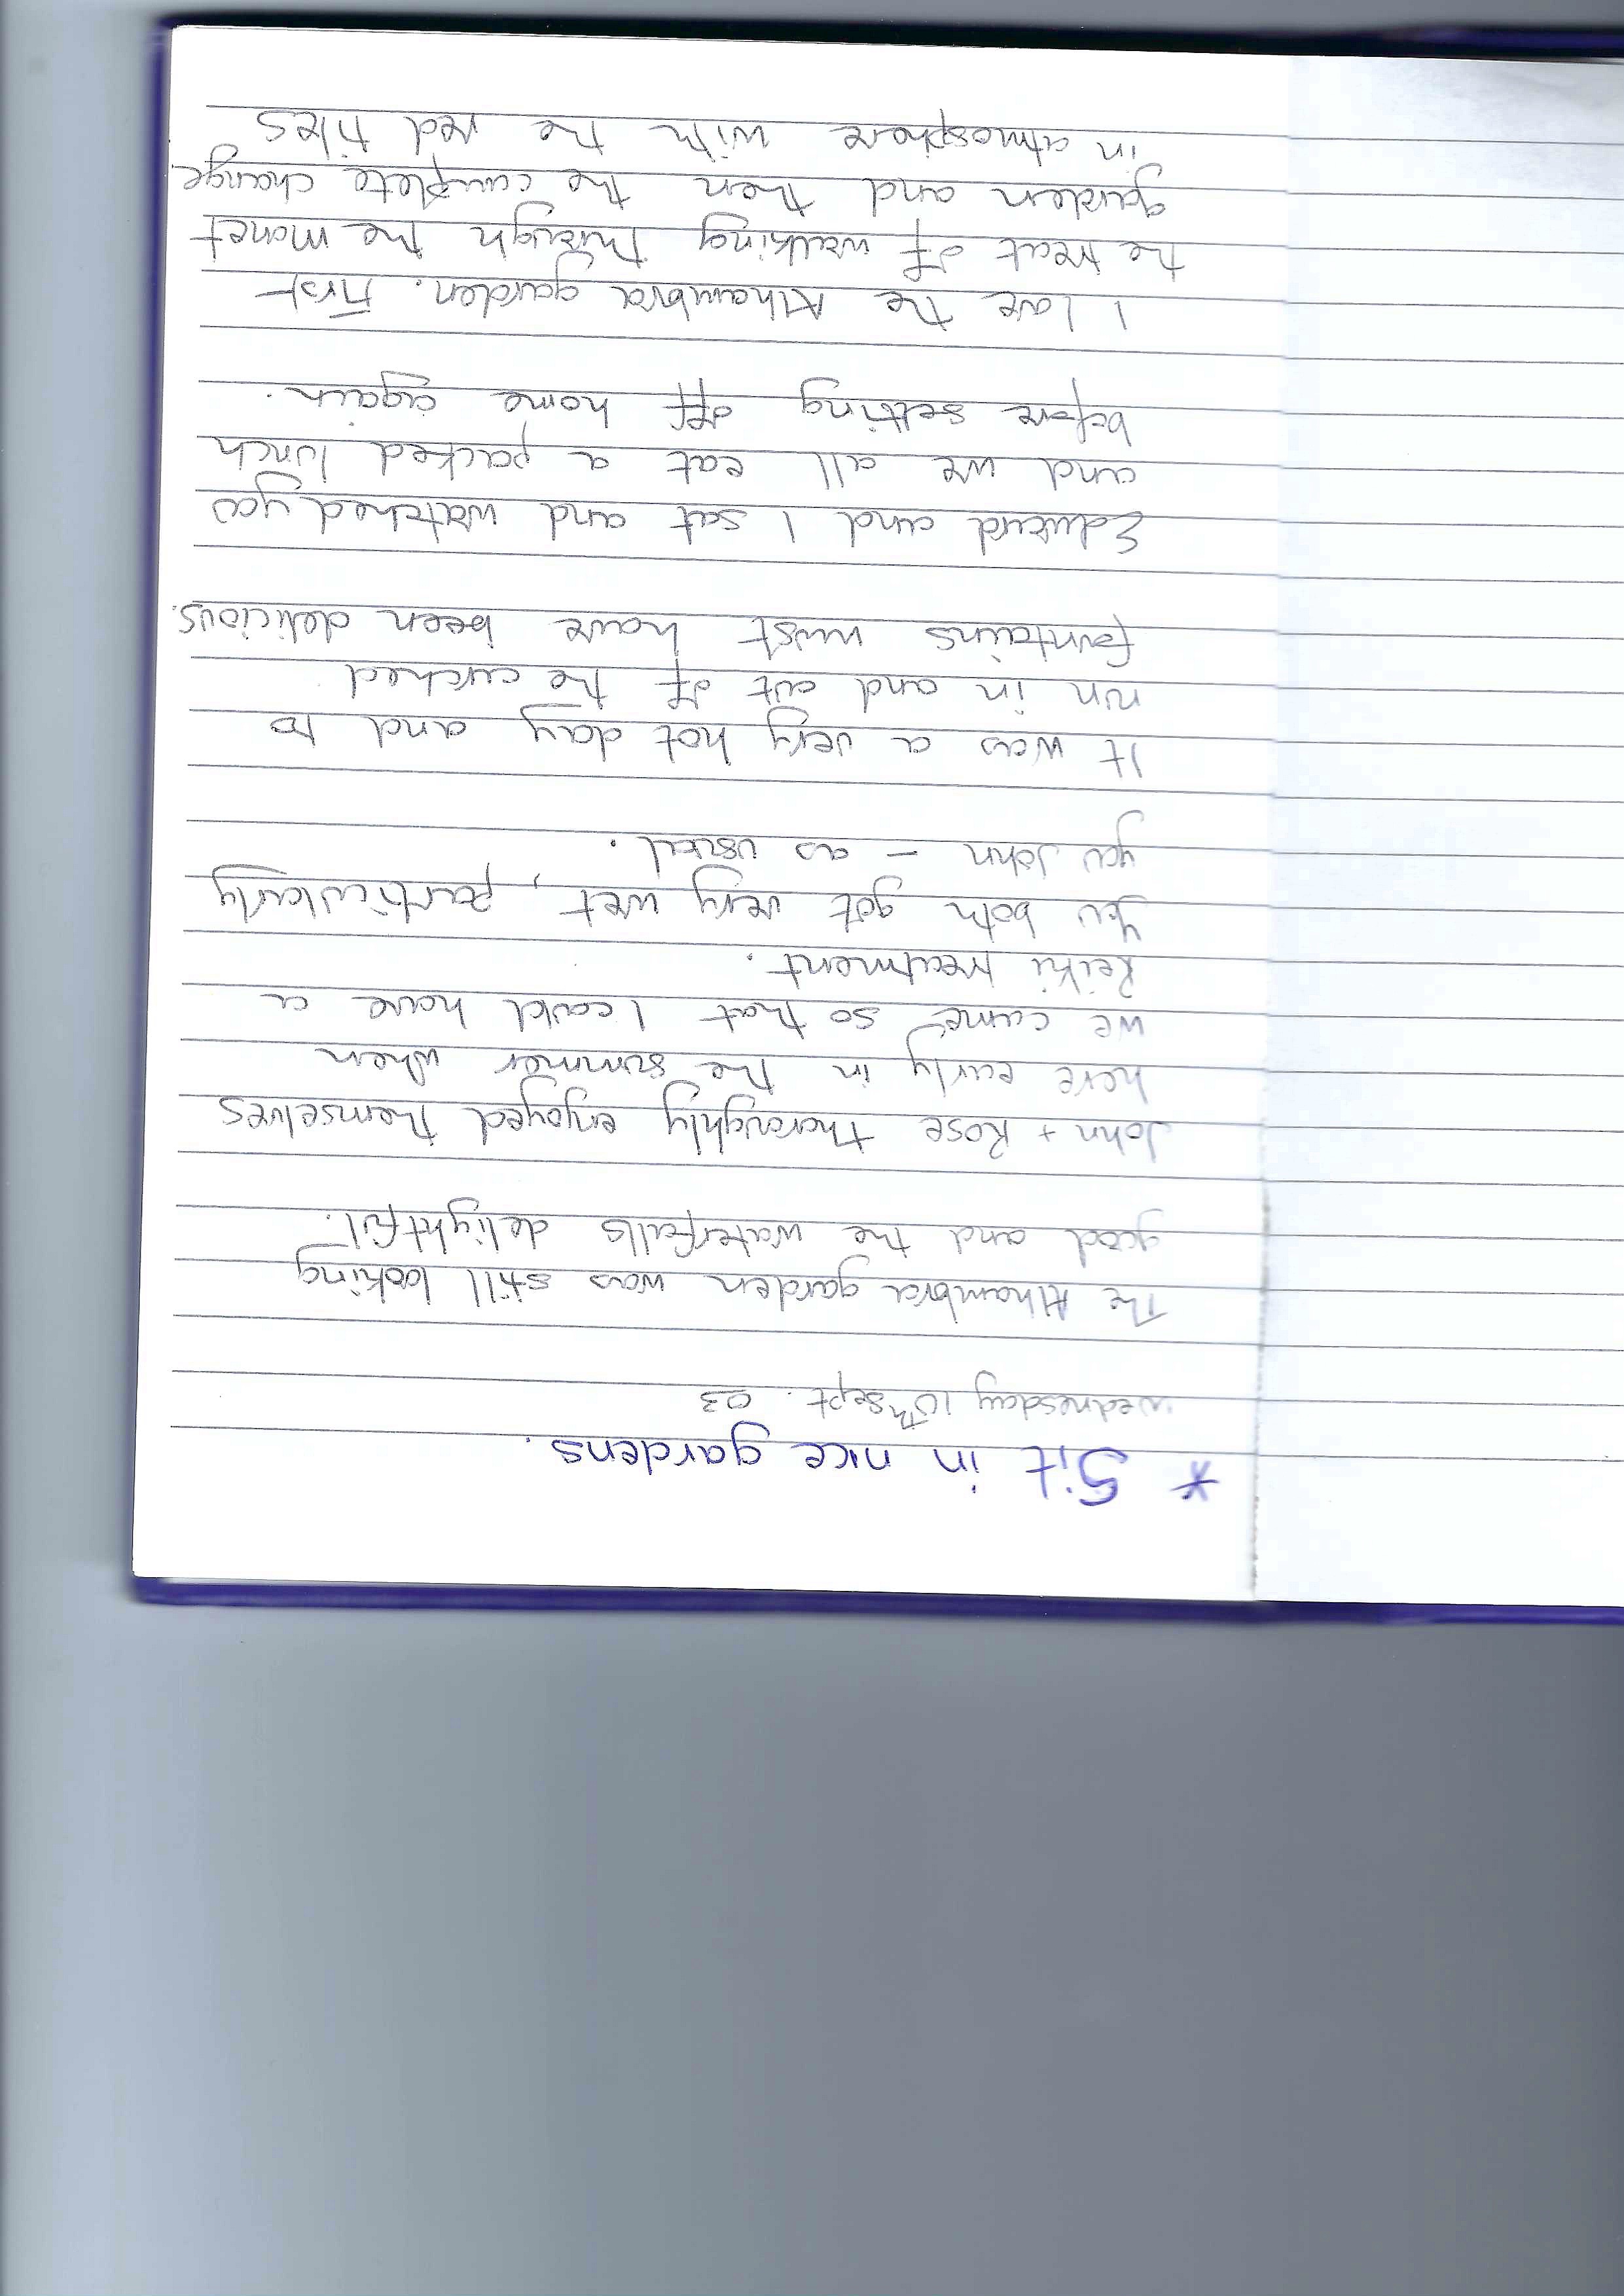 * Sit in nice gardens.
Wednesday 10th Sept. 03
The Alhambra garden was still looking
good and the waterfalls delightful.
John + Rose thoroughly enjoyed themselves
here early in the summer when
we came so that I could have a
Reiki treatment.
You both got very wet, particularly
you John – as usual.
It was a very hot day and to
run in and out of the arched
fountains must have been delicious.
Edward and I sat and watched you
and we all eat a packed lunch
before setting off home again.
I love the Alhambra garden. First
the treat of walking through the Monet
garden and then the complete change
in atmosphere with the red tiles